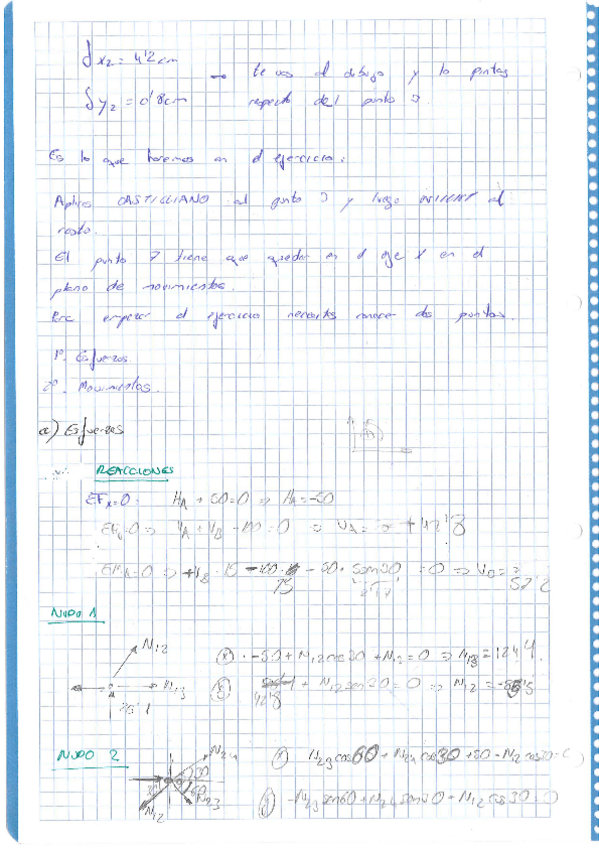 δx₂ = 4'2 cm
→ te vas al dibujo y lo pintas
δy₂ = 0'8 cm respecto del punto 2.
Es lo que haremos en el ejercicio.
Aplicas CASTIGLIANO al punto 2 y luego al
resto.
El punto 7 tiene que quedar en el eje x en el
plano de movimientos.
Para empezar el ejercicio necesitas conocer dos puntos.
1º. Esfuerzos.
2º. Movimientos.
a) Esfuerzos
REACCIONES
EFx=0: HA + 50=0 ⇒ HA=-50
=0 ⇒ VA + VB - 100 = 0 ⇒ VA = + 42'8
=0 ⇒ +VB · 15 - 50 · = 0 ⇒ VB = 57'2
NUDO 1
N12
N13
(x) · -50 + N12 cos 30 + N13 = 0 ⇒ N13 = 124'4.
(y) 42'8 + N12 sen 30 = 0 ⇒ N12 =
NUDO 2
N24
30
30
60
N23
N12
(x) N23 cos 60 + N24 cos 30 + 50 - N12 cos 30 =
(y) -N23 sen 60 + N24 sen 30 - N12 cos 30 = 0